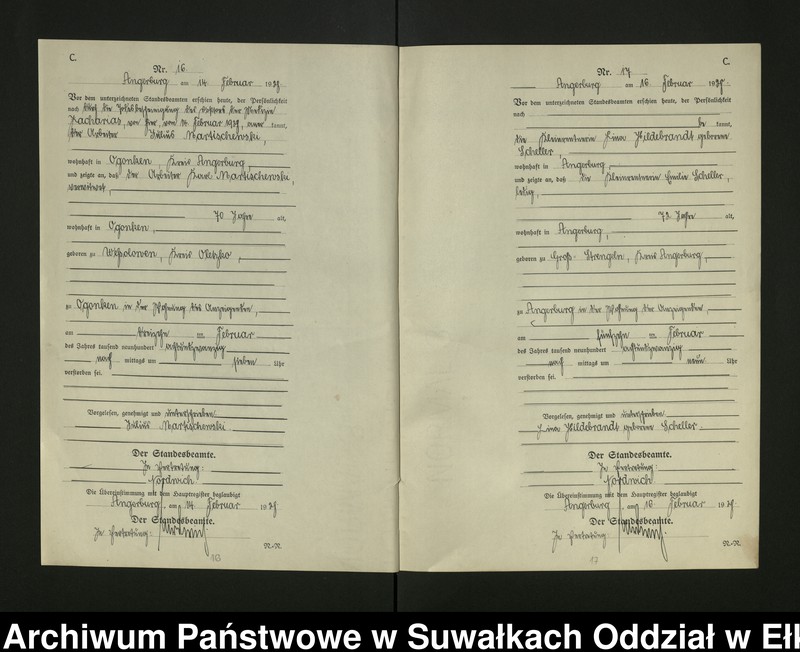 C.
Nr. 16
Angerburg am 14. Februar 19
Vor dem unterzeichneten Standesbeamten erschien heute, der Persönlichkeit
nach
Zacharias, von hier, vom 14. Februar kannt,
der Arbeiter Julius Martischewski,
wohnhaft in Ogonken, Kreis Angerburg,
und zeigte an, daß der Arbeiter Karl Martischewski,
verwitwet,
70 Jahre alt,
wohnhaft in Ogonken,
geboren zu Kreis Oletzko,
zu Ogonken in der Wohnung des Anzeigenden,
am dreizehn ten Februar
des Jahres tausend neunhundert
nach mittags um sieben Uhr
verstorben sei.
Vorgelesen, genehmigt und unterschrieben
Julius Martischewski
Der Standesbeamte.
In Vertretung:
Nordwich
Die Übereinstimmung mit dem Hauptregister beglaubigt
Angerburg, am 14. Februar 19
Der Standesbeamte.
In Vertretung:
N+N
C.
Nr. 17
Angerburg am 16. Februar 19
Vor dem unterzeichneten Standesbeamten erschien heute, der Persönlichkeit
nach
be kannt,
die Kleinrentnerin Lina Hildebrandt geborene
Scheller,
wohnhaft in Angerburg,
und zeigte an, daß die Kleinrentnerin Emilie Scheller,
ledig,
73 Jahre alt,
wohnhaft in Angerburg,
geboren zu Groß Strengeln, Kreis Angerburg,
zu Angerburg in der Wohnung der Anzeigenden,
am fünfzehn ten Februar
des Jahres tausend neunhundert
nach mittags um neun Uhr
verstorben sei.
Vorgelesen, genehmigt und unterschrieben
Lina Hildebrandt geborene Scheller
Der Standesbeamte.
In Vertretung:
Nordwich
Die Übereinstimmung mit dem Hauptregister beglaubigt
Angerburg, am 16. Februar 19
Der Standesbeamte.
In Vertretung:
N+N
17
Archiwum Państwowe w Suwałkach Oddział w Ełk